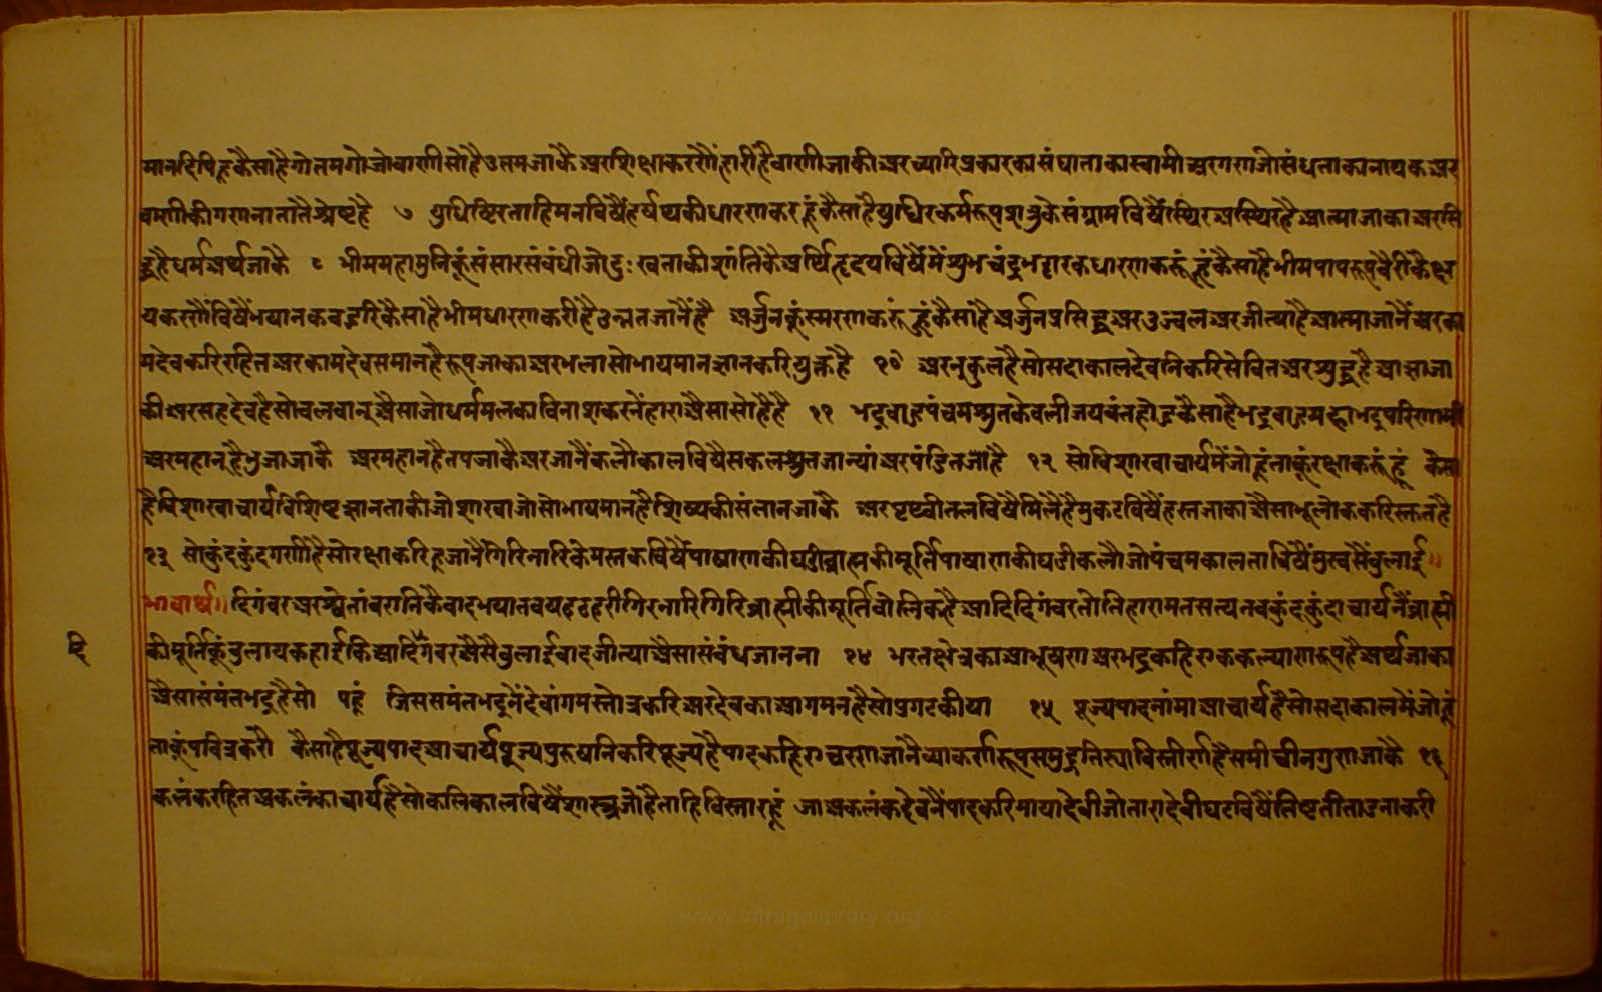 मानदिषिहू कैसाहै गोतमगोजोवाणीसोहै उत्तमजाकै अरशिक्षाकरणैंहारीहैवाणीजाकी अरच्यारिप्रकारकासंघाताकास्वामी अरगणजोसंघताकानायक अर
वाणीकीगणनातातैंश्रेष्टहै ७ युधिष्टिरताहिमनविषैंहर्षथकीधारणकरहूं कैसाहैयुधिरकर्मरूपशत्रुकेसंग्रामविषैंस्थिरअस्थिरहैआत्माजाकाअरसि
द्धहैधर्मअर्थजाकै ८ भीममहामुनिकूंसंसारसंबंधीजोदुःखताकीशांतिकैअर्थिहृदयविषैंमेंशुभचंद्रभट्टारकधारणकरूंहूं कैसाहैभीमपापरूपवैरीकैक्ष
यकरणैंविषैंभयानकबहुरिकैसाहैभीमधारणकरीहैउन्नतजानैंहै अर्जुनकूंस्मरणकरूंहूंकैसाहैअर्जुनप्रसिद्धअरउज्वलअरजीत्याहैआत्माजानैंअरका
मदेवकरिरहितअरकामदेवसमानहैरूपजाकाअरभलासोभायमानज्ञानकरियुक्तहै १० अरनुकुलहैसोसदाकालदेवनिकरिसेवितअरशुद्धहैआज्ञाजा
कीअरसहदेवहैसोबलवान्अैसाजोधर्ममलकाविनाशकरनेंहाराअैसासोहैहै ११ भद्रवाहुपंचमश्रुतकेवलीजयवंतहोहुकैसाहैभद्रवाहुमहाभद्रपरिणामी
अरमहान्हैभुजाजाकै अरमहानहैतपजाकैअरजानैंकलौकालविषैसकलश्रुतजान्यांअरपंडितजोहै १२ सोविशाखाचार्यमेंजोहूंताकूंरक्षाकरूंहूं कैसा
हैविशाखाचार्यविशिष्टज्ञानताकीजोशाखाजोसोभायमानहैशिष्यकीसंतानजाकै अरपृथ्वीतलविषैमिलेहैमुकटविषैंहस्तजाकाअैसाभूलोककरिस्तुतहै
१३ सोकुंदकुंदगणीहैसोरक्षाकरिहूजानैंगिरिनारिकेमस्तकविषैंपाषाणकीघडीब्राह्मकीमूर्तिपाषाणकीघडीकलौजोपंचमकालताविषैंमुखसैंवुलाई॥
भावार्थ॥ दिगंवरअरश्वेतांवरानिकैवादभयातवयहठहरीगिरनारिगिरिब्राह्मीकीमूर्तिवोलिकहैआदिदिगंवरतोतिहारामतसत्यतबकुंदकुंदाचार्यनैंब्राह्मी
कीमूर्तिकूंवुलायकहाईकिआदिदिगंवरअैसैंवुलाईवादजीत्याअैसासंबंधजानना १४ भरतक्षेत्रकाआभूषणअरभद्रकहिएककल्याणरूपहैअर्थजाका
दि
अैसासंमंतभद्रहैसो पहूं जिससमंतभद्रनेंदेवांगमस्तोत्रकरिअरदेवकाआगमनहैसोप्रगटकीया १५ पूज्यपादनांमाआचार्यहैसोसदाकालमेंजोहूं
ताकूंपवित्रकरौ कैसाहैपूज्यपादआचार्यपूज्यपुरुषनिकरिपूज्यहैपादकहिएचरणजानैव्याकर्णरूपसमुद्रतिस्याविस्तीर्णहैसमीचीनगुणजाकै १६
कलंकरहितअकलंकाचार्यहैसोकलिकालविषैंशास्त्रजोहैताहिविस्तारहूं जाअकलंकदेवनैंपादकरिमायादेवीजोतारादेवीघटविषैंतिष्टतीताउनाकरी